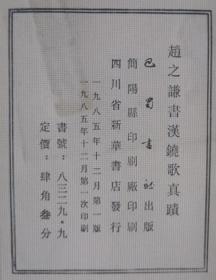 趙之謙書漢鐃歌真蹟
巴蜀書社出版
簡陽縣印刷廠印刷
四川省新華書店發行
一九八五年十二月第一版
一九八五年十二月第一次印刷
書號：八三二九·九
定價：肆角叁分